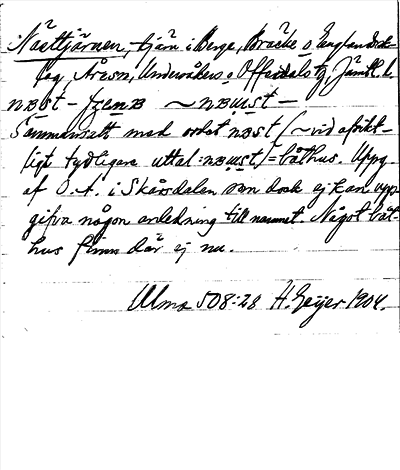 Nåettjärnen, tjärn i Berge, Bräcke o
fag, Åresn, Undersåkers o Offerdals tg, Jämtl. l.
Sammansatt med ordet nBst (~ vid afsikt-
ligt tydligare uttal: nBwst) = båthus. Uppg.
af O.A. i Skårsdalen som dock ej kan upp-
gifva någon anledning till namnet. Något båt-
hus finns där ej nu.
Ulma 508:28 H. Geijer 1904.